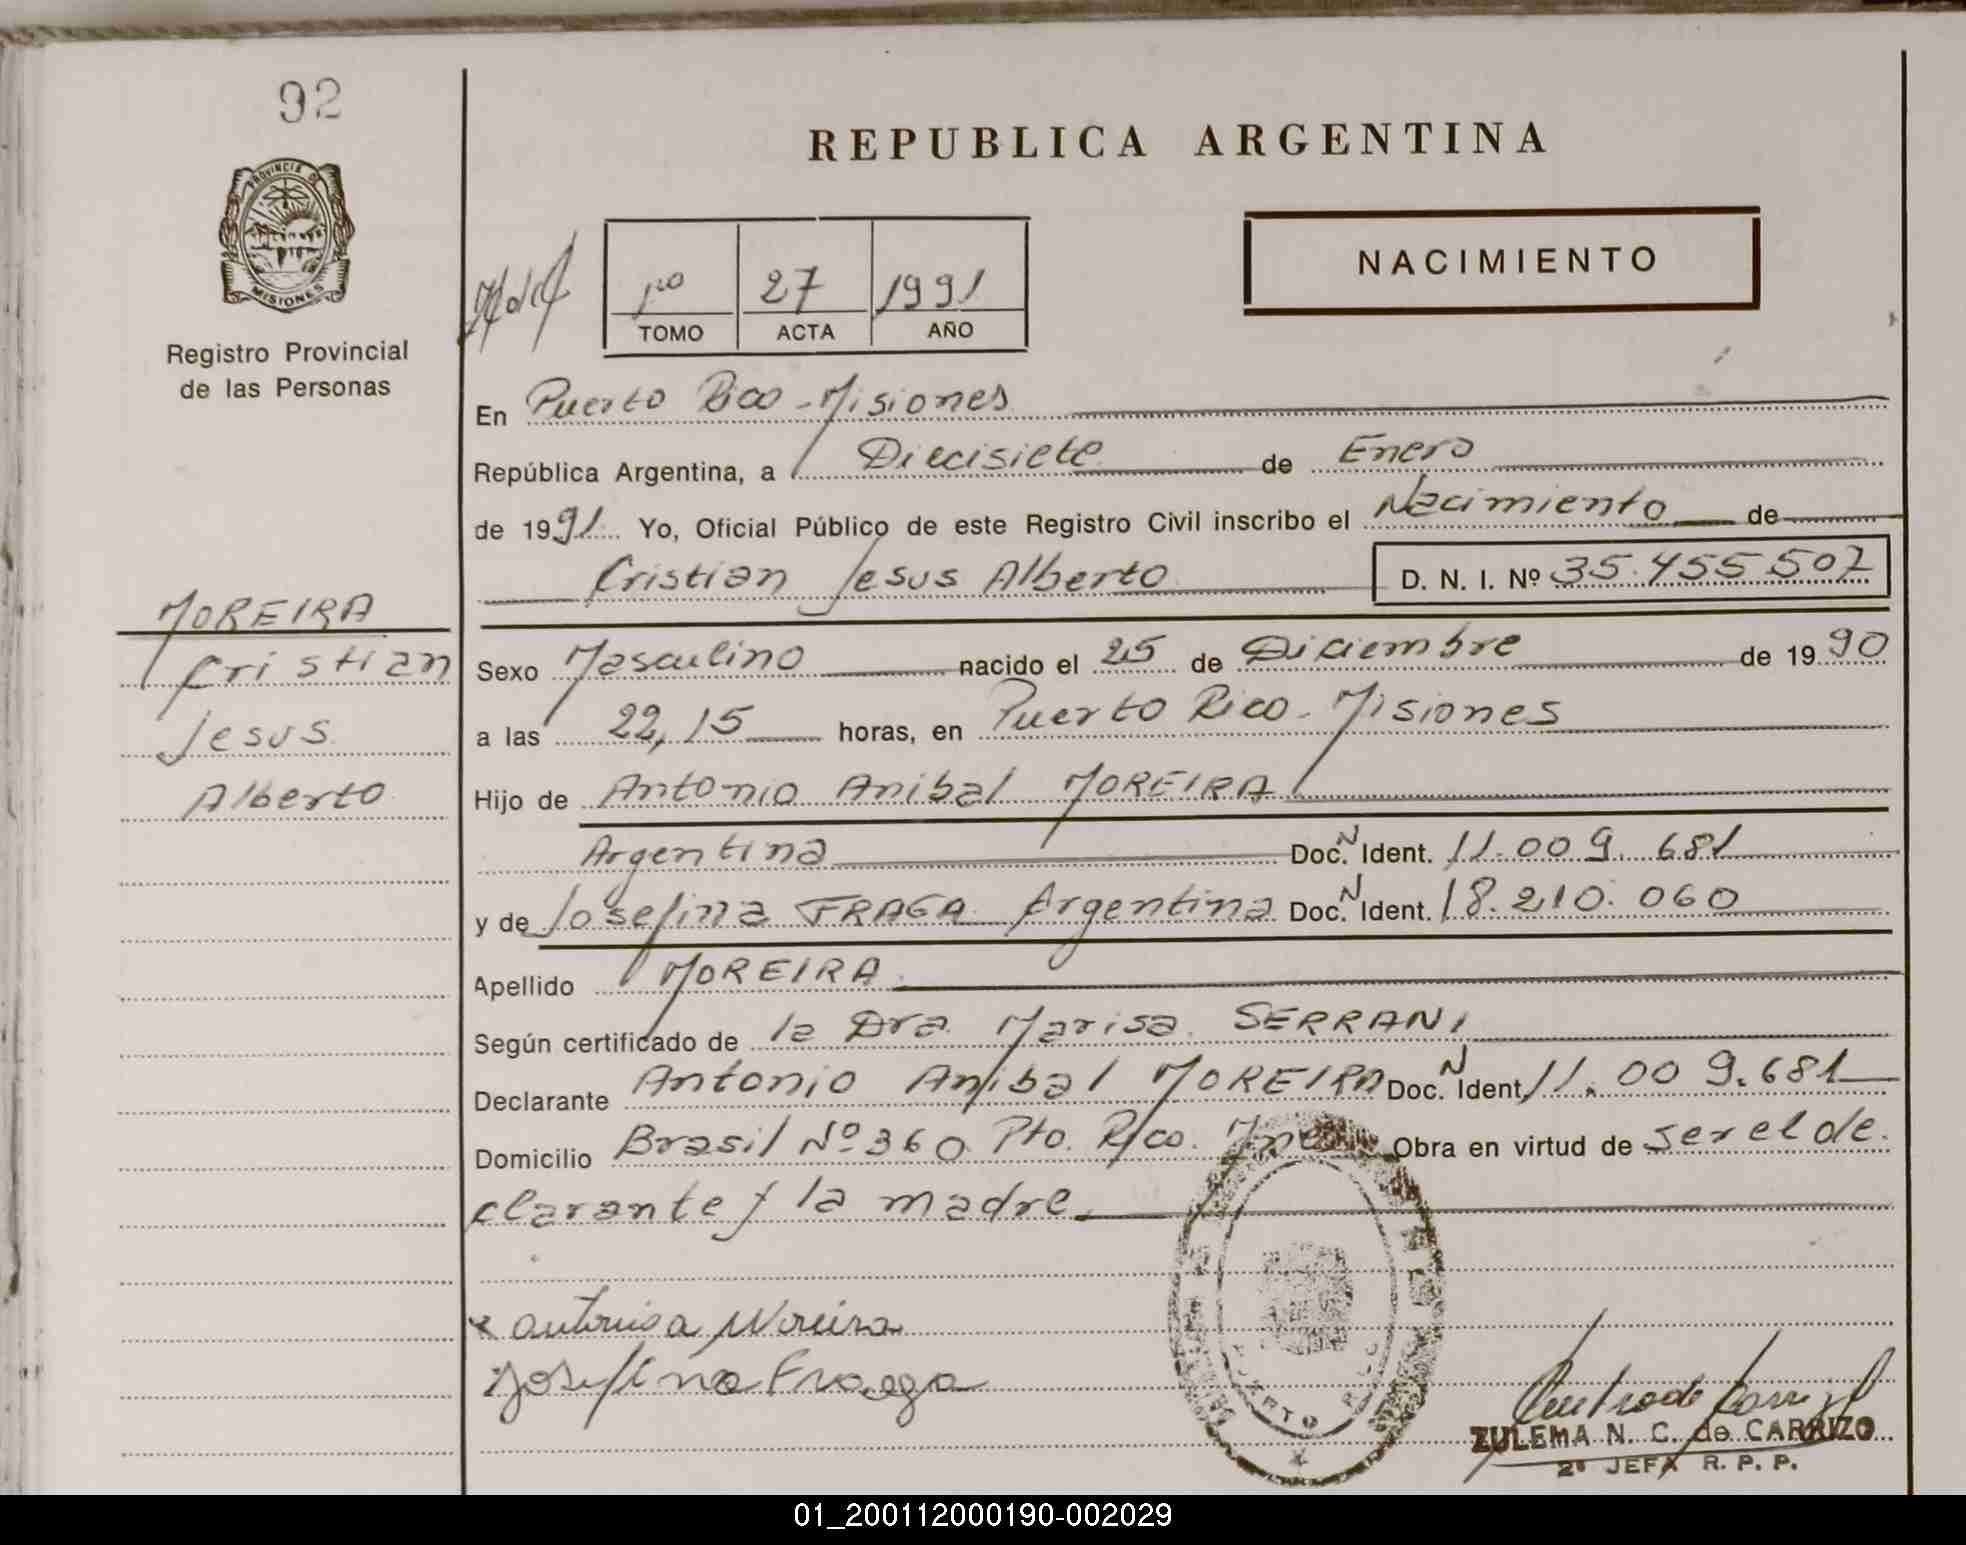 92
REPUBLICA ARGENTINA
PROVINCIA DE
MISIONES
Registro Provincial
de las Personas
1ro 27 1991
TOMO ACTA AÑO
NACIMIENTO
En Puerto Rico - Misiones
República Argentina, a Diecisiete de Enero
de 1991 Yo, Oficial Público de este Registro Civil inscribo el Nacimiento de
Cristian Jesus Alberto D. N. I. Nº 35.455.507
MOREIRA
Cristian
Jesus
Alberto
Sexo Masculino nacido el 25 de Diciembre de 1990
a las 22,15 horas, en Puerto Rico - Misiones
Hijo de Antonio Anibal MOREIRA
Argentina Doc. N Ident. 11.009.681
y de Josefina FRAGA Argentina Doc. N Ident. 18.210.060
Apellido MOREIRA
Según certificado de la Dra. Marisa SERRANI
Declarante Antonio Anibal MOREIRA Doc. N Ident. 11.009.681
Domicilio Brasil Nº 360 Pto. Rico. Mnes Obra en virtud de ser el de
clarante y la madre.
x Antonio a Moreira
Josefina Fraga
PUERTO RICO
ZULEMA N. C. de CARRIZO
2º JEFA R. P. P.
01_200112000190-002029